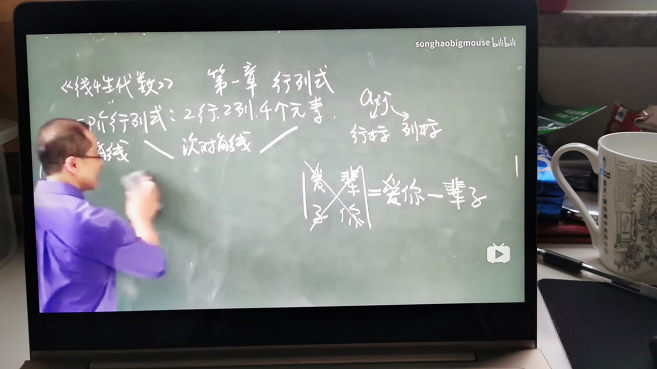 songhaobigmouse bilibili
《线性代数》 第一章 行列式
二阶行列式：2行.2列.4个元素.
aij
行标 列标
角线 次对角线
|爱 辈
子 你| = 爱你一辈子